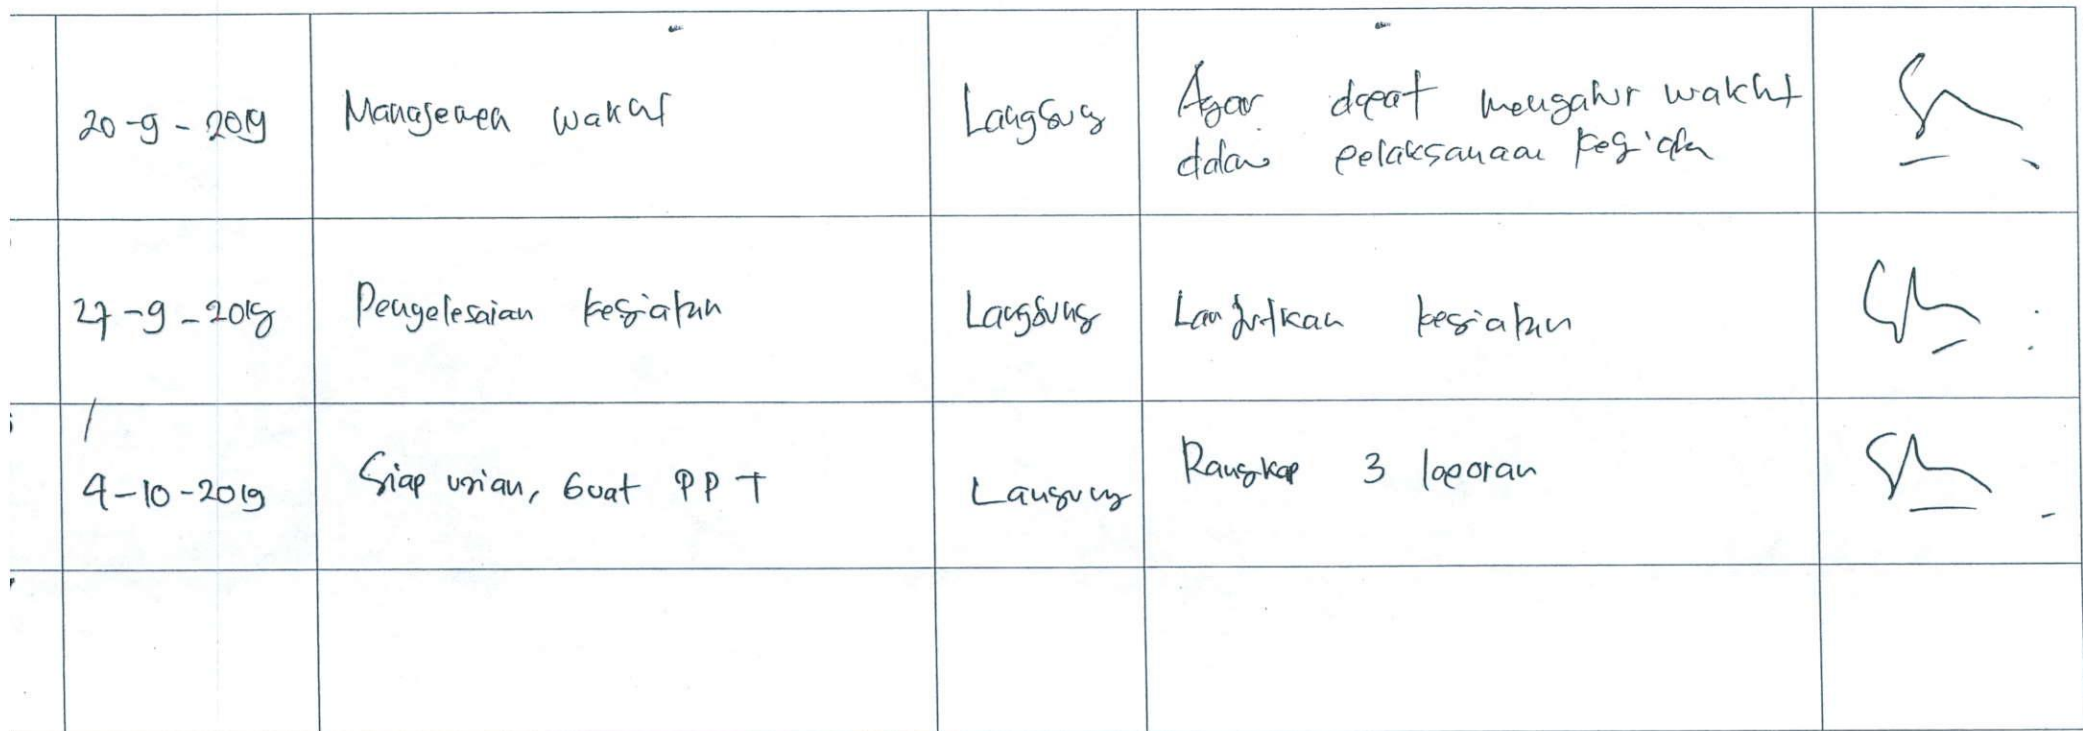 20-9-2019 Manajemen waktu Langsung Agar dapat mengatur wakt
dalam pelaksanaan kegiatan
27-9-2019 Pengelesaian kegiatan Langsung Lanjutkan kegiatan
4-10-2019 Siap ujian, buat PPT Langsung Rangkap 3 laporan